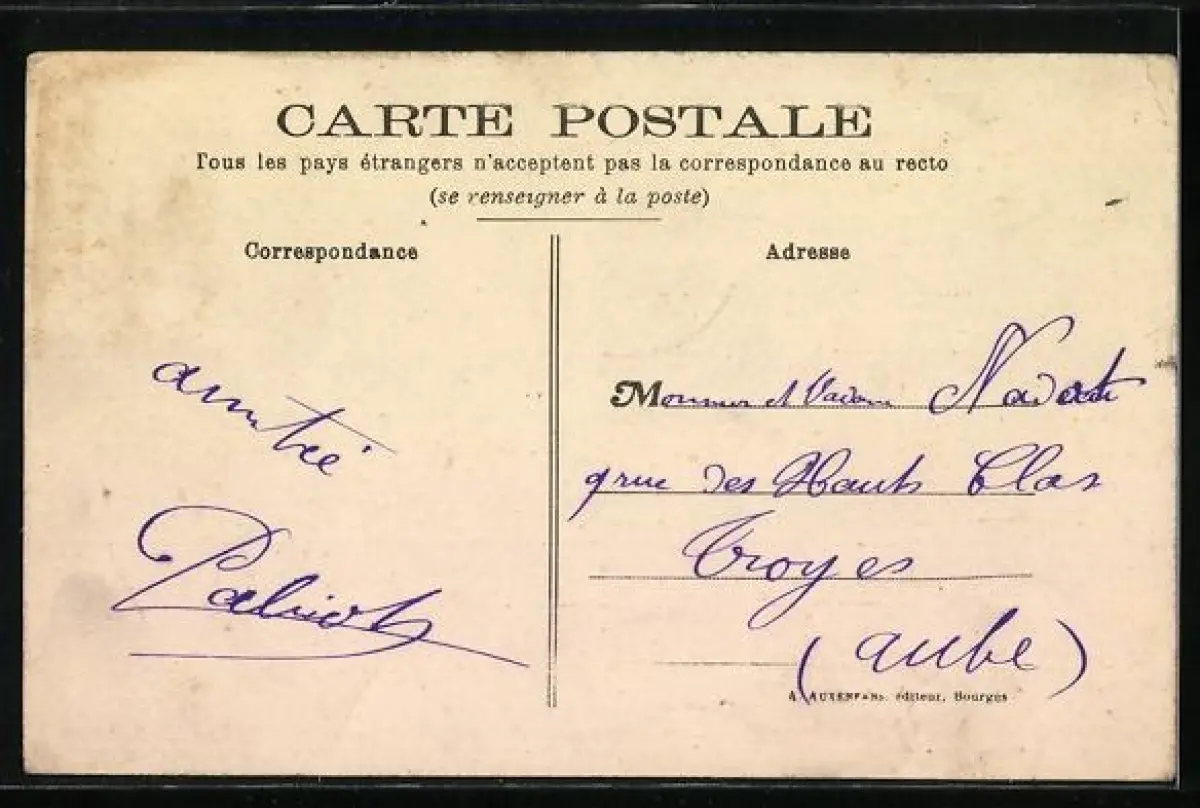 CARTE POSTALE
Tous les pays étrangers n'acceptent pas la correspondance au recto
(se renseigner à la poste)
Correspondance
Adresse
amitié
Monsieur et Madame
9 rue des Hauts Clos
Troyes
(Aube)
A. AUXENFANS, éditeur, Bourges